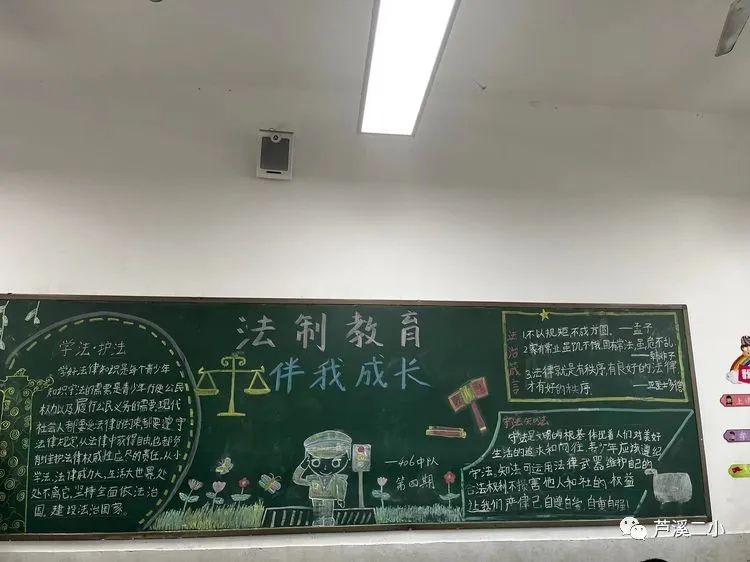 法制教育
伴我成长
学法·护法
学好法律知识是每个青少年
知识守法的需要是青少年行使公民
权力以及履行公民义务的需要,现代
社会人
法律规定,从法律中获得自由也都
学法,法律威力大,生活大世界处
处不离它,坚持全面依法治
国,建设法治国家.
406中队
第四期
法治成言
1.不以规矩不成方圆.——孟子
2.家有常业,虽饥不饿,国有常法,虽危不乱
——韩非子
3.法律就是有秩序,有良好的法律
才有好的秩序
——亚里士多德
守法,知法
生活的追求和向往,青少年应该遵纪
守法,知法,可运用法律武器维护自己的
合法权利不损害他人和社的权益
让我们严律己,自尊自爱,自重自强!
芦溪二小